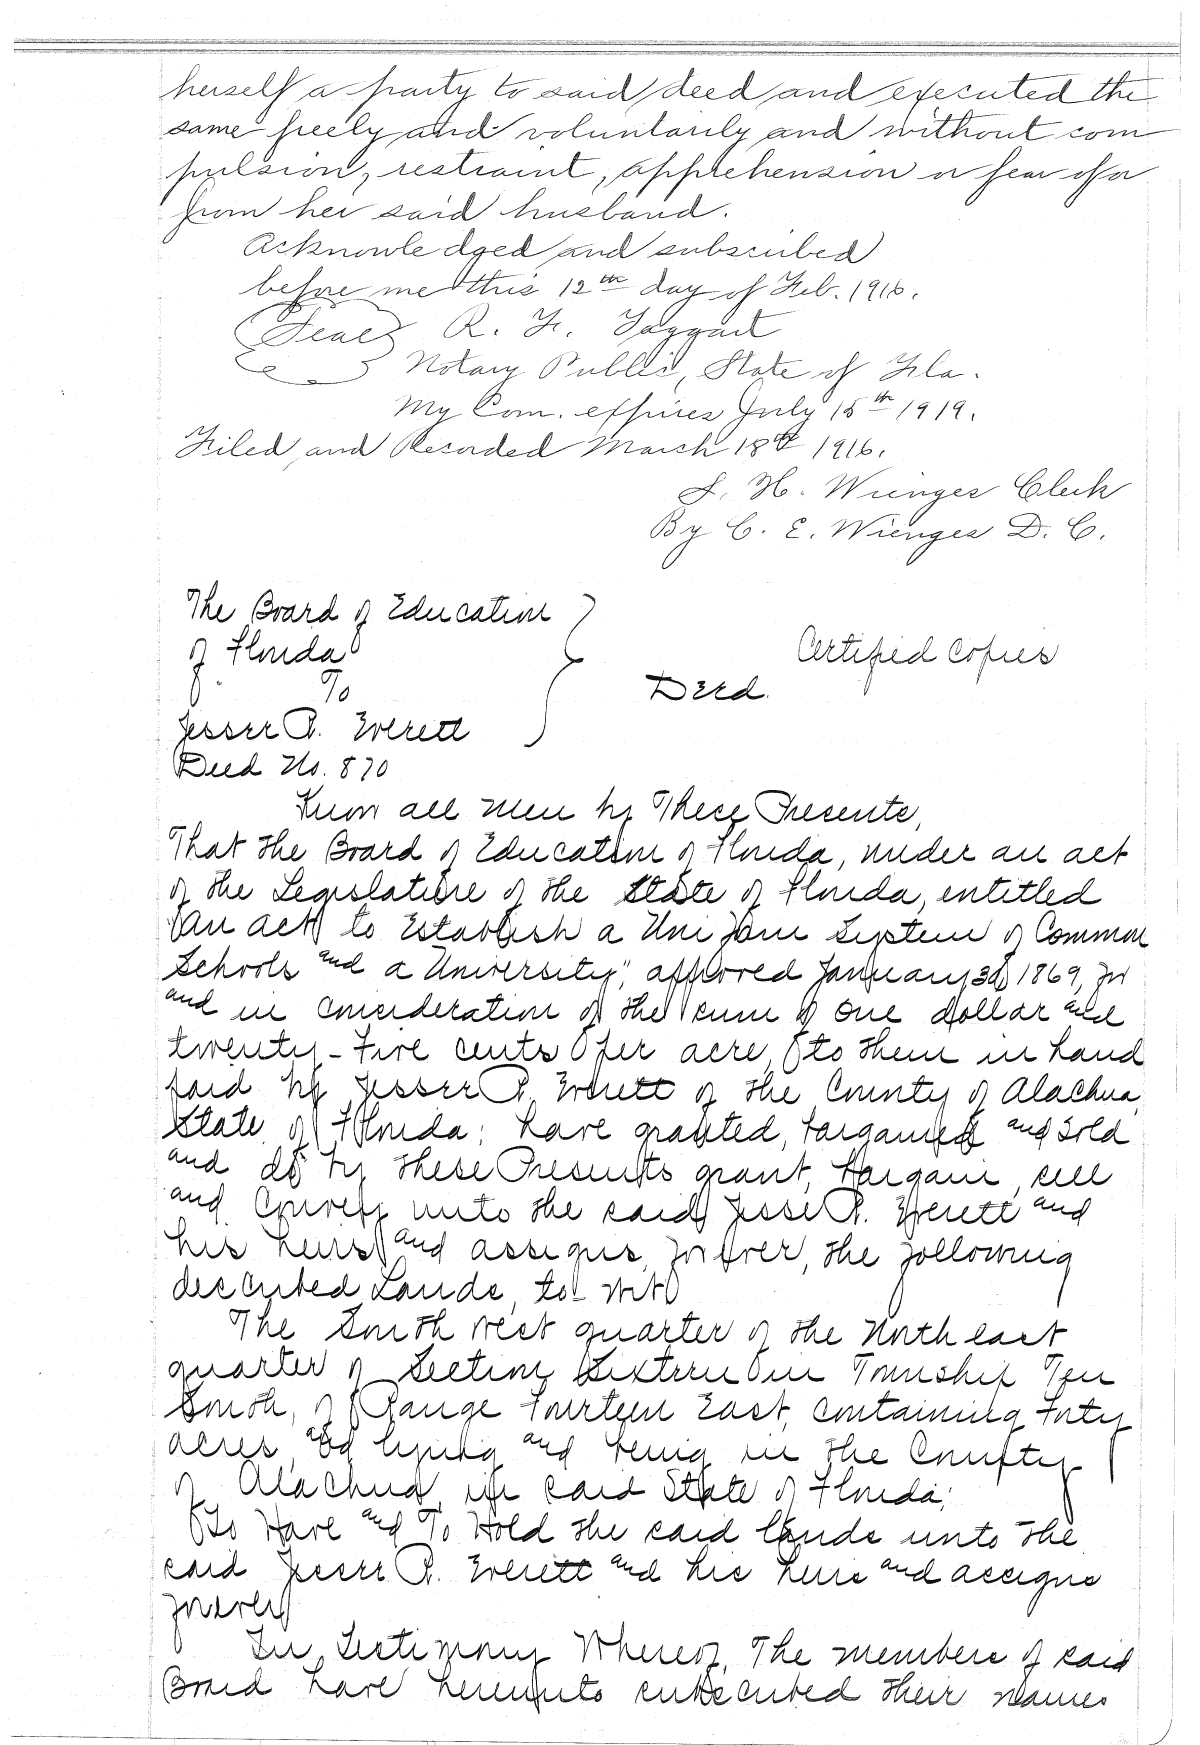 herself a party to said deed and executed the
same freely and voluntarily and without com
pulsion, restraint, apprehension or fear of or
from her said husband.
Acknowledged and subscribed
before me this 12th day of Feb. 1916.
Seal R. F. Taggart
Notary Public, State of Fla.
My Com. expires July 15th 1919.
Filed and Recorded March 18th 1916.
S. H. Wienges Clerk
By C. E. Wienges D. C.
The Board of Education
of Florida
Certified Copies
To
Deed.
Jesse R. Everett
Deed No. 870
Know all Men by These Presents,
That the Board of Education of Florida, under an act
of the Legislature of the State of Florida, entitled
"An act to Establish a Uniform System of Common
Schools and a University," approved January 30, 1869, for
and in consideration of the sum of One dollar and
twenty-five cents per acre, to them in hand
paid by Jesse R. Everett of the County of Alachua,
State of Florida; have granted, bargained and sold
and do by these Presents grant, bargain, sell
and convey unto the said Jesse R. Everett and
his heirs and assigns, forever, the following
described Lands, to-wit
The South West quarter of the North east
quarter of Section Sixteen in Township Ten
South, of Range Fourteen East, containing forty
acres, and lying and being in the County
of Alachua, in said State of Florida;
To Have and To Hold the said lands unto the
said Jesse R. Everett and his heirs and assigns
forever
In Testimony Whereof, The members of said
Board have hereunto subscribed their names